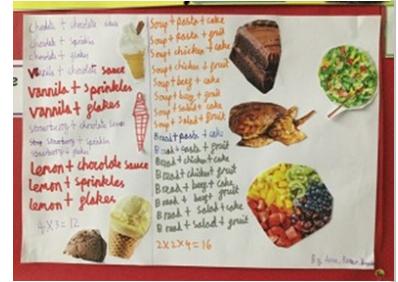 chocolate + chocolate sauce
chocolate + sprinkles
chocolate + flakes
Vanilla + chocolate sauce
vannila + sprinkles
vannila + flakes
strawberry + chocolate
strawberry + sprinkles
strawberry + flakes
Lemon + chocolate sauce
lemon + sprinkles
lemon + flakes
4X3=12
Soup + pasta + cake
Soup + pasta + fruit
Soup + chicken + cake
Soup + chicken + fruit
Soup + beef + cake
Soup + beef + fruit
Soup + salad + cake
Soup + salad + fruit
Bread + pasta + cake
Bread + pasta + fruit
Bread + chicken + cake
Bread + chicken + fruit
Bread + beef + cake
Bread + beef + fruit
Bread + salad + cake
Bread + salad + fruit
2X2X4=16
By